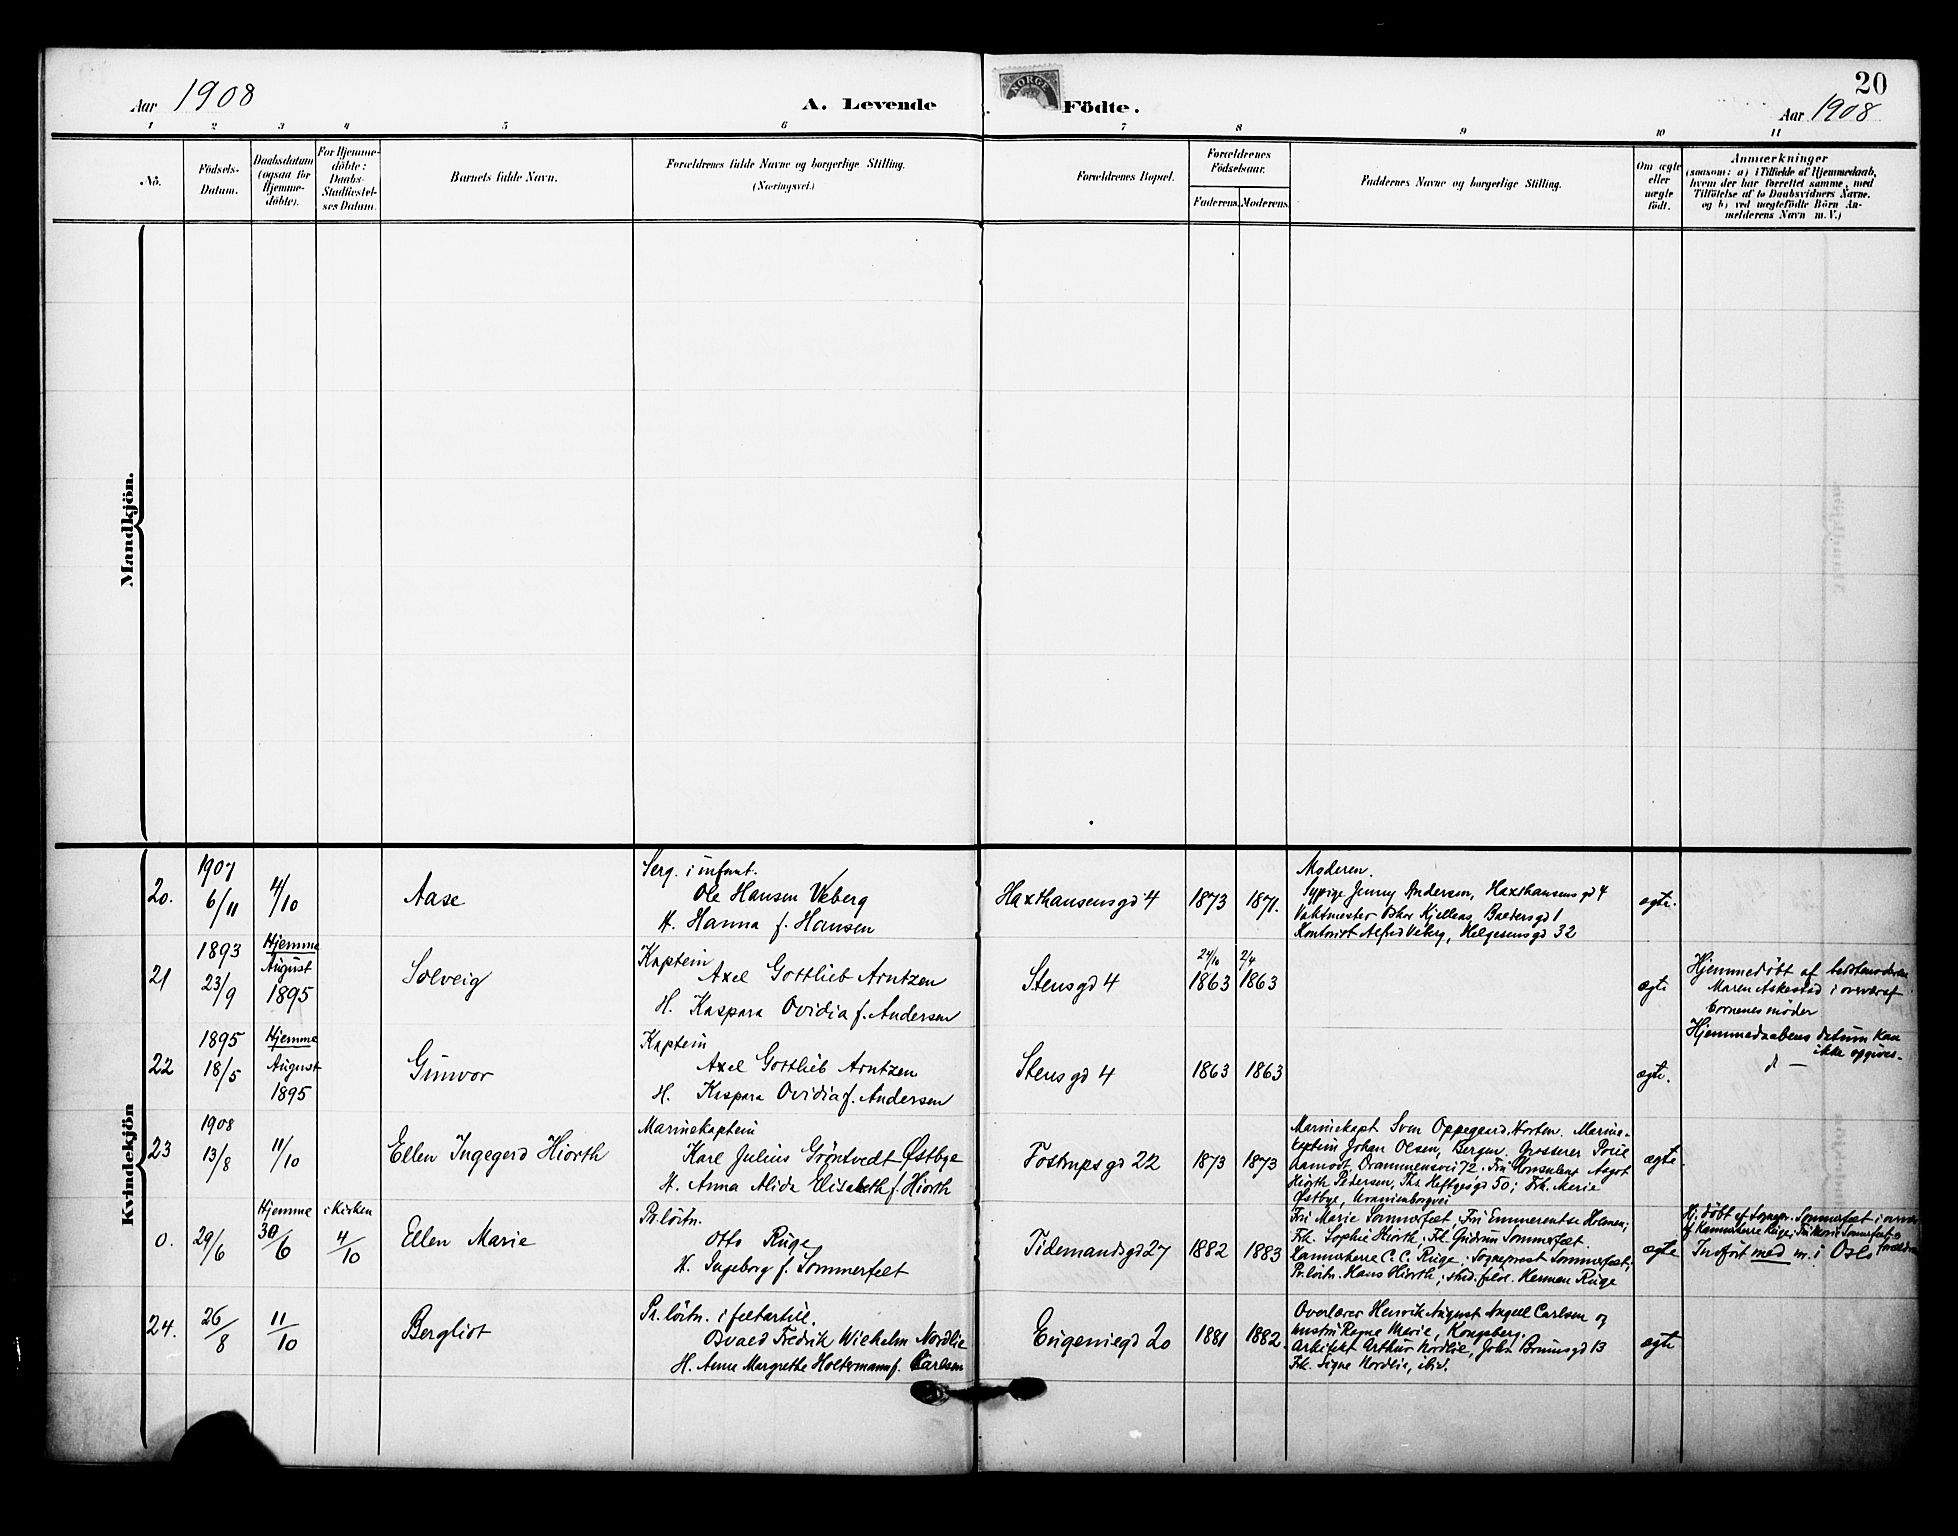 20
Aar 1908
A. Levende
NORGE
Födte.
Aar 1908
1 2 3 4 5 6 7 8 9 10 11
No.
Födsels-
Datum.
Daabsdatum
(ogsaa for
Hjemme-
döbte).
For Hjemme-
döbte:
Daabs-
Stadfæstel-
ses Datum.
Barnets fulde Navn.
Forældrenes fulde Navne og borgerlige Stilling.
(Næringsvei.)
Forældrenes Bopæl.
Forældrenes
Födselsaar.
Faderens. Moderens.
Faddernes Navne og borgerlige Stilling.
Om ægte
eller
uægte
födt.
Anmærkninger
(saasom: a) i Tilfælde af Hjemmedaab,
hvem der har forrettet samme, med
Tilföielse af to Daabsvidners Navne.
og b) ved uægtefödte Börn An-
melderens Navn m. V.)
Mandkjön.
Kvindekjön
20.
1907
6/11
4/10
Aase
Serg. i infant.
Ole Hansen Veberg
H. Hanna f. Hansen
Haxthausensgd 4
1873
1871.
Moderen.
Sypige Jenny Andersen, Haxthausensgd 4
Vaktmester Oskar Kjellaas, Baldersgd 1
Kontorist Alfred Veberg, Helgesensgd 32
ægte.
21
1893
23/9
Hjemme
August
1895
Solveig
Kaptein
Axel Gottlieb Arntzen
H. Kaspara Ovidia f. Andersen
Stensgd 4
24/10
1863
2/4
1863
ægte
Hjemmedøbt af bedstemoderen
Maren Askestad i overvær af
børnenes moder
Hjemmedaabens datum kan
ikke opgives.
22
1895
18/5
Hjemme
August
1895
Gunvor
Kaptein
Axel Gottlieb Arntzen
H. Kaspara Ovidia f. Andersen
Stensgd 4
1863
1863
ægte.
d —
23
1908
13/8
11/10
Ellen Ingegerd Hiorth
Marinekaptein
Karl Julius Gröntvedt Østbye
H. Anna Alida Elisabeth f. Hiorth
Fostrupsgd 22
1873
1873
Marinekapt Sven Oppegaard, Horten. Marine-
kaptein Johan Olsen, Bergen. Grosserer
Aamodt, Drammensvei 72. Fru Konsulent Aagot
Hiorth Pedersen, Ths Heftyesgd 50; Frk. Marie
Østbye, Uranienborgvei
ægte
0.
29/6
Hjemme
30/6
i Kirken
4/10
Ellen Marie
Pr.löitn.
Otto Ruge
H. Ingeborg f. Sommerfelt
Tidemandsgd 27
1882
1883
Fru Marie Sommerfelt, Fru Emmerentse Holmen;
Frk. Sophie Hiorth, Frk Gudrun Sommerfelt
Kammerherre C. C. Ruge. Sogneprest Sommerfelt;
Pr.löitn. Hans Hiorth, stud. filol. Herman Ruge
ægte
Hj. døbt af Sognepr. Sommerfelt i overvær
af Kammerherre Ruge, Fru Marie Sommerfelt o
forældre
Indført med nr. i Oslo
24.
26/8
11/10
Bergliot
Pr.löitn. i feltartill.
Osvald Fredrik Wilhelm Nordlie
H. Anne Margrethe Holtermann f. Carlsen
Eugeniegd 20
1881
1882.
Overlærer Henrik August Angell Carlsen og
hustru Ragna Marie, Kongsberg.
Arkitekt Arthur Nordlie, John Brunsgd 13
Frk. Signe Nordlie, ibid.
ægte